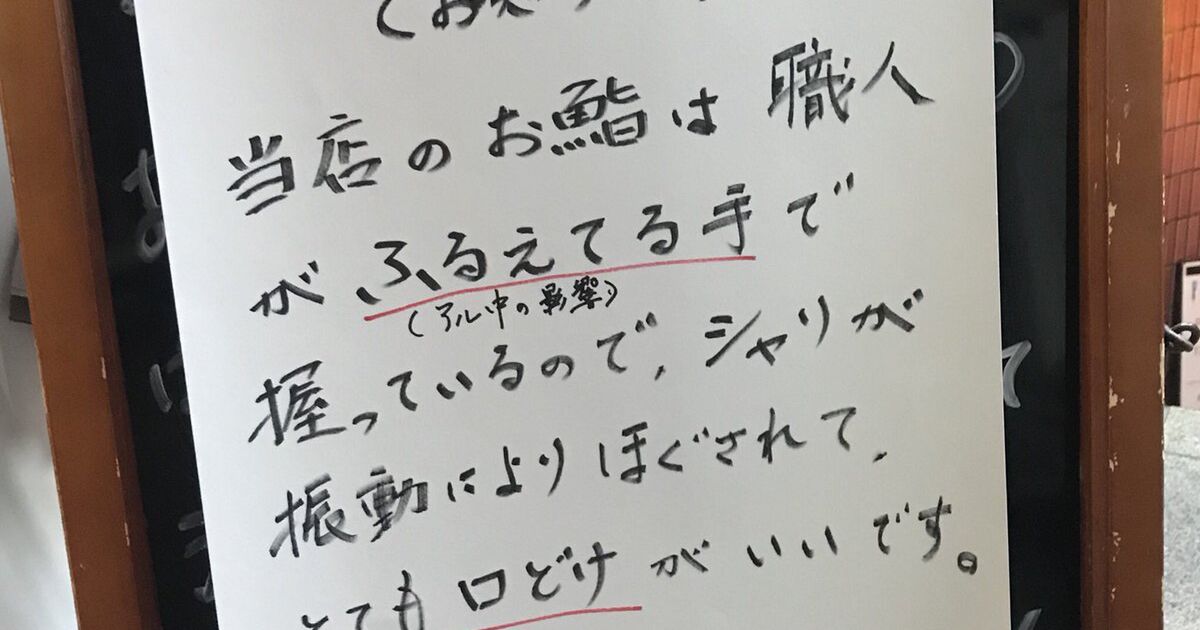 当店のお鮨は職人
がふるえてる手で
(アル中の影響)
握っているので、シャリが
振動によりほぐされて、
とても口どけがいいです。